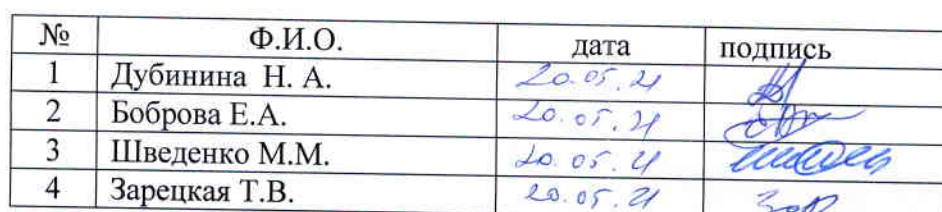 № Ф.И.О. дата подпись
1 Дубинина Н. А. 20.05.21
2 Боброва Е.А. 20.05.21
3 Шведенко М.М. 20.05.21
4 Зарецкая Т.В. 20.05.21 Зар